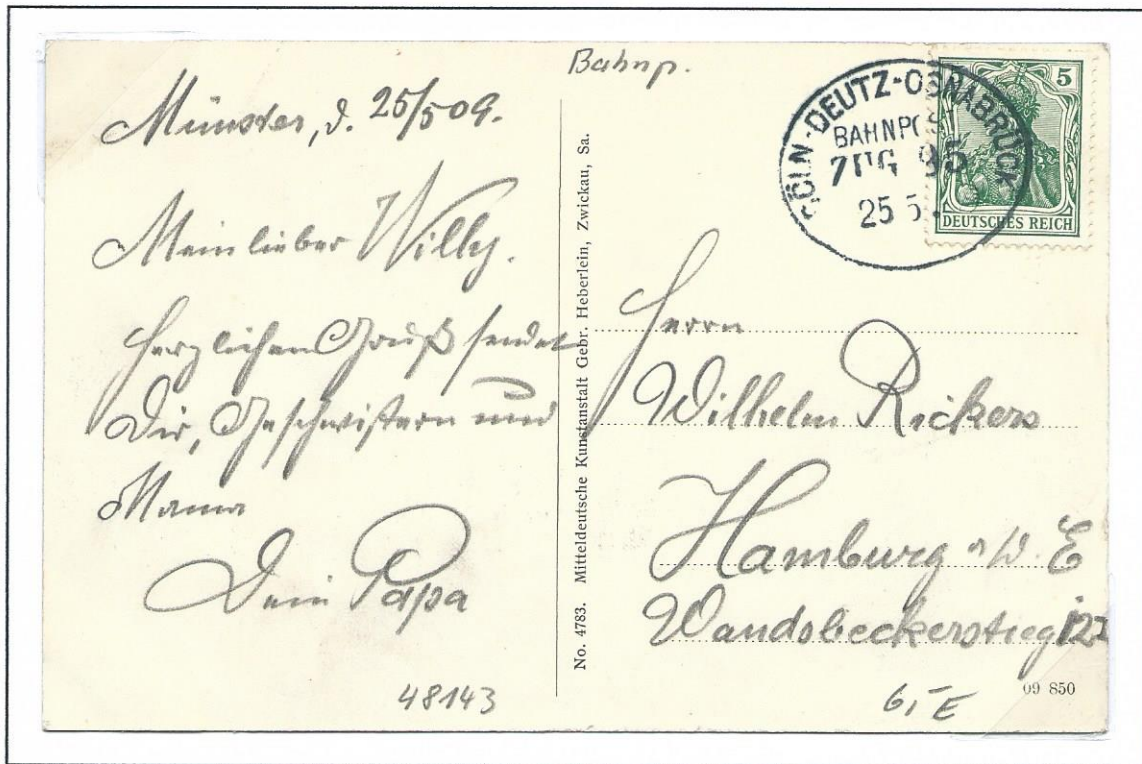 Bahnp.
Münster, d. 25/5 09.
Mein lieber Willy.
Herzlichen Gruß sendet
Dir, Geschwistern und
Mama
Dein Papa
48143
No. 4783. Mitteldeutsche Kunstanstalt Gebr. Heberlein, Zwickau, Sa.
CÖLN-DEUTZ-OSNABRÜCK
BAHNPOST
ZUG 95
25 5
5
DEUTSCHES REICH
Herrn
Wilhelm Rickers
Hamburg
Wandsbeckerstieg
09 850